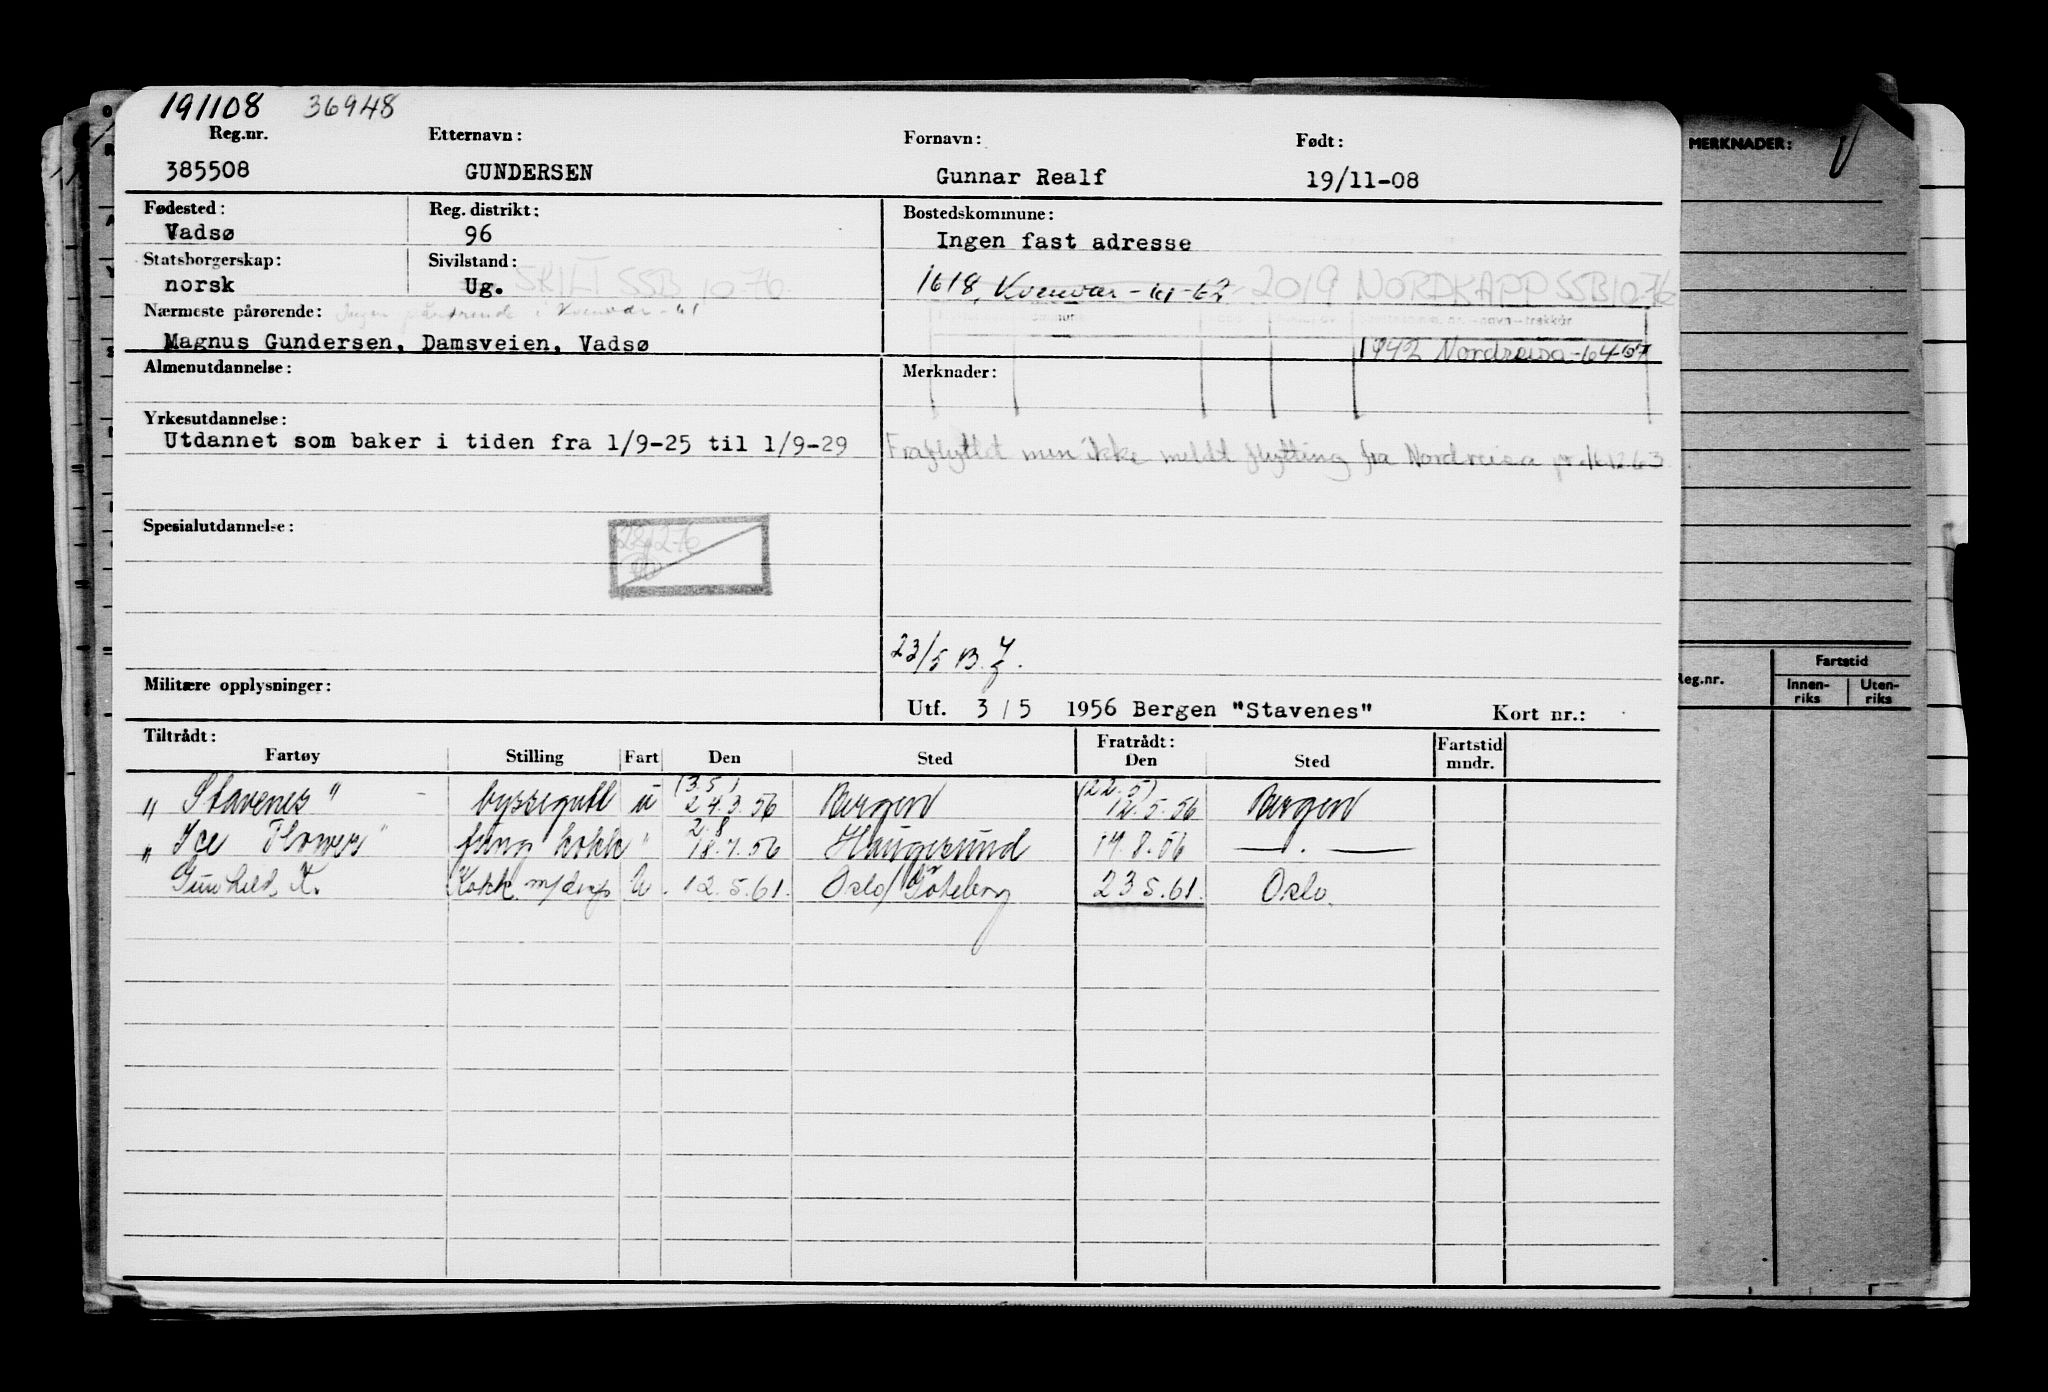 191108 36948
Reg.nr. Etternavn: Fornavn: Født:
385508 GUNDERSEN Gunnar Realf 19/11-08
MERKNADER:
Fødested: Reg. distrikt: Bostedskommune:
Vadsø 96 Ingen fast adresse
Statsborgerskap: Sivilstand:
norsk Ug. SKILT SSB 1076
1618, Kvenvær - 61-62 2019 NORDKAPP SSB 1076
Nærmeste pårørende: Ingen pårørende i Kvenvær - 61
Magnus Gundersen, Damsveien, Vadsø
1942 Nordreisa - 64-67
Almenutdannelse: Merknader:
Yrkesutdannelse:
Utdannet som baker i tiden fra 1/9-25 til 1/9-29
Fraflyttet men ikke meldt flytting fra Nordreisa
Spesialutdannelse:
23/5 B.
Militære opplysninger:
Utf. 3/5 1956 Bergen "Stavenes" Kort nr.:
Reg.nr. Fartstid
Innen-riks Uten-riks
Tiltrådt: Fratrådt: Fartstid
Fartøy Stilling Fart Den Sted Den Sted mndr.
(3.5) (22.5)
"Stavenes" byssegutt u 24.3.56 Bergen 12.5.56 Bergen
2.8
"Ice Flower" fung kokk " 18.7.56 Haugesund 19.8.56 — . —
Gunhild K. Kokk m/disp U. 12.5.61. Oslo/Göteborg 23 5.61. Oslo.